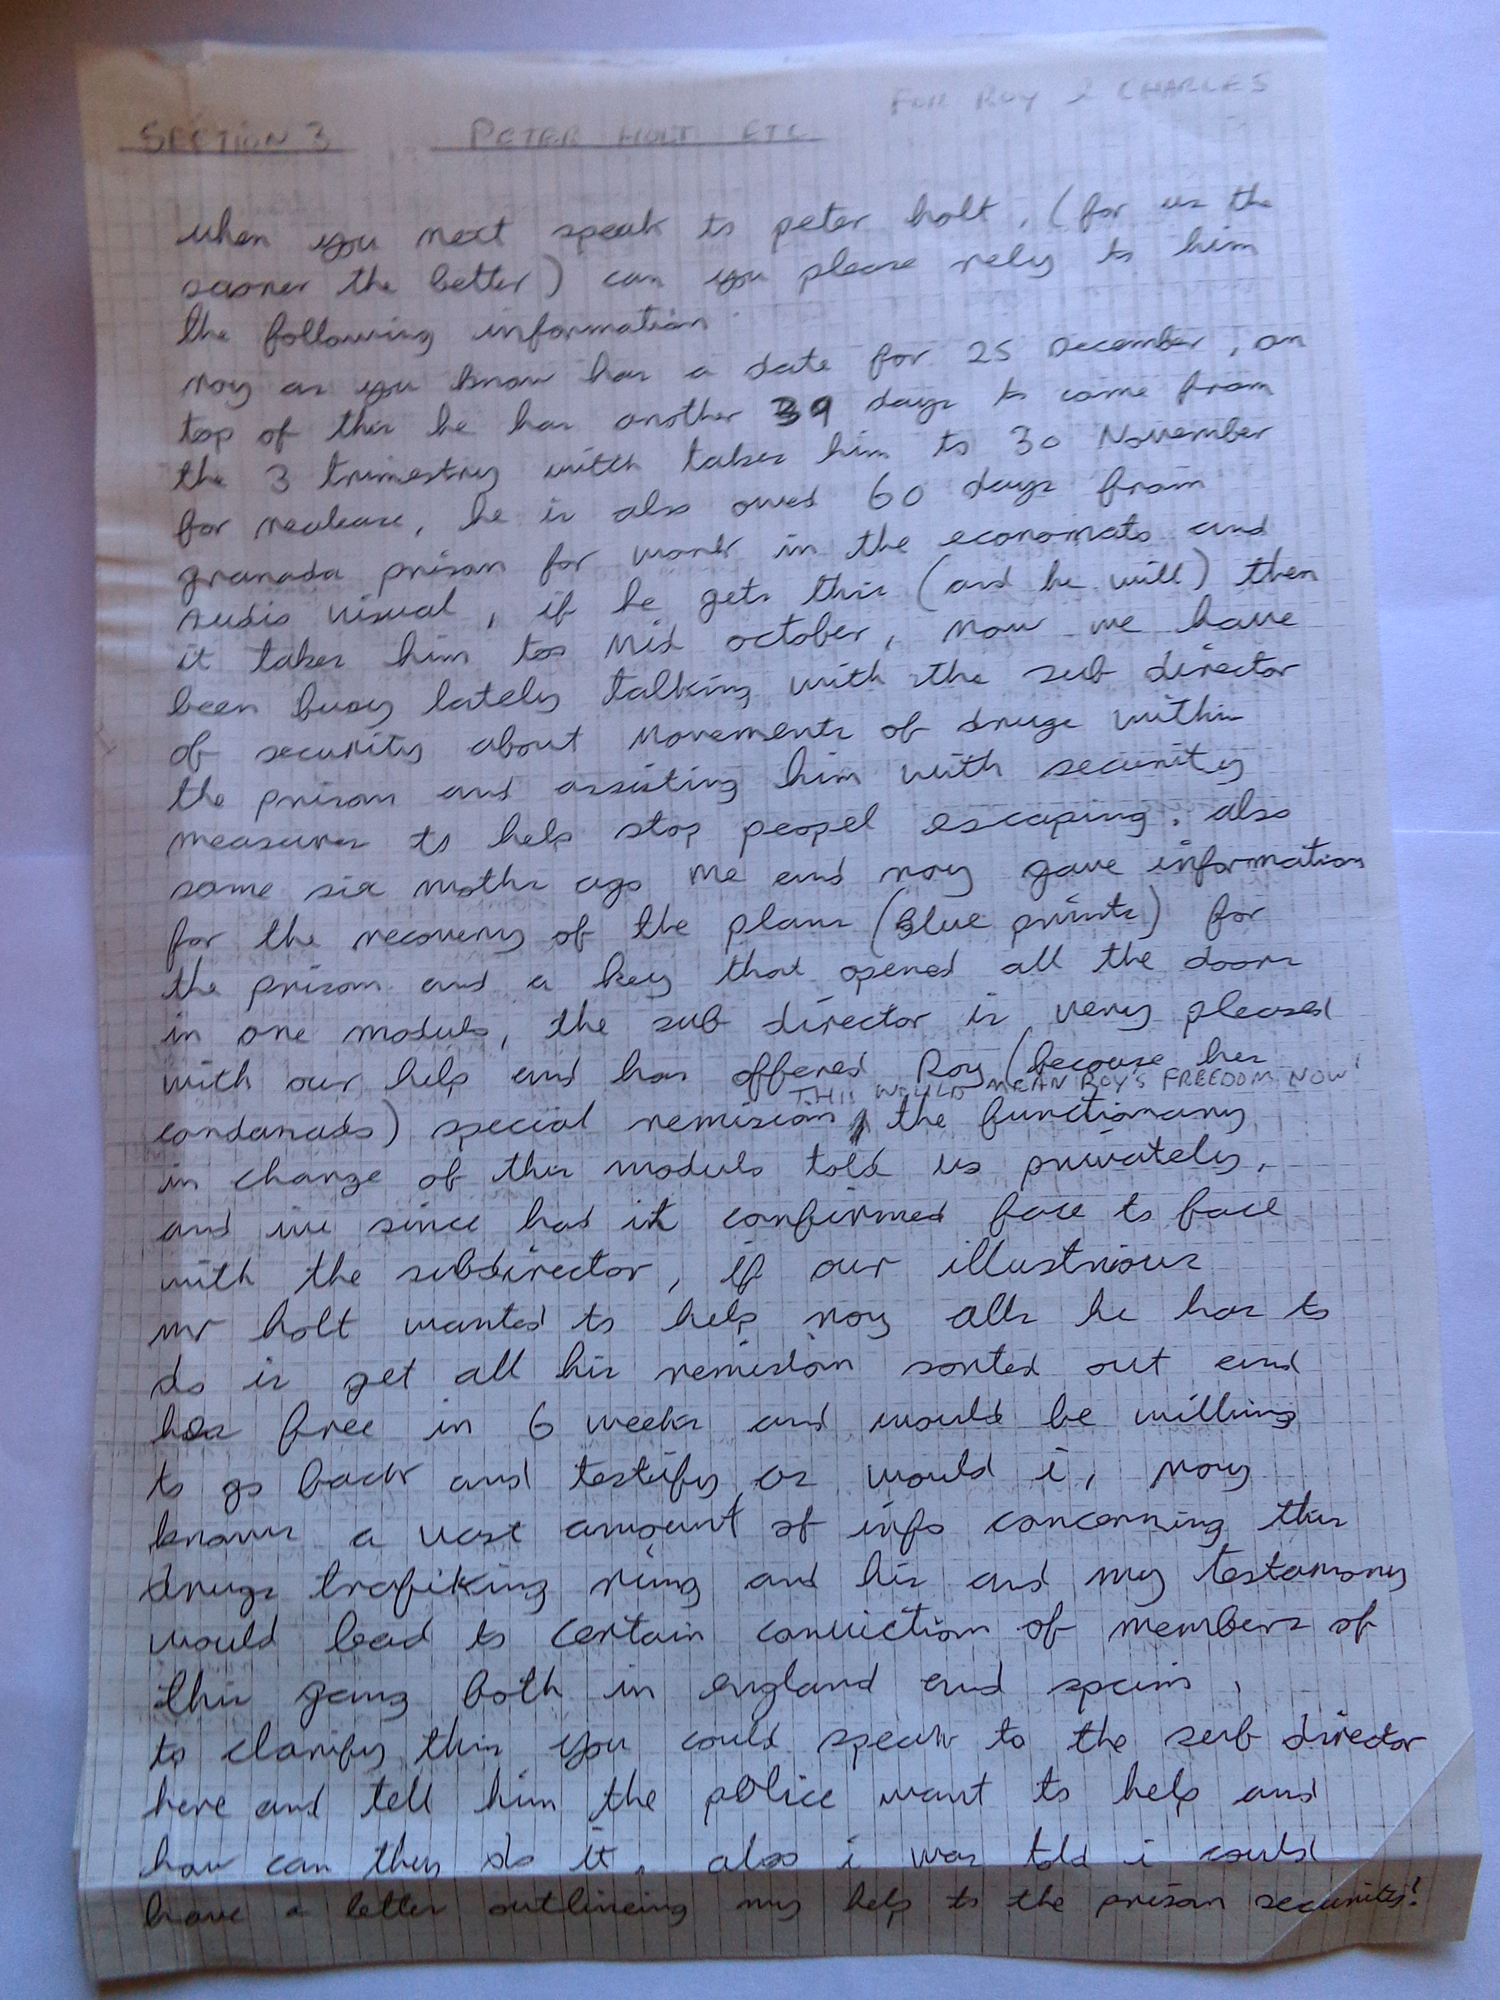 FOR ROY & CHARLES
SECTION 3 PETER HOLT ETC
when you next speak to peter holt, (for us the
sooner the better) can you please rely to him
the following information
roy as you know has a date for 25 December, on
top of this he has another 39 days to come from
the 3 trimestry witch takes him to 30 November
for realease, he is also owed 60 days from
granada prison for work in the economato and
audio visual, if he gets this (and he will) then
it takes him too mid october, now we have
been busy lately talking with the sub director
of security about movements of drugs within
the prison and assisting him with security
measures to help stop peopel escaping. also
some six moths ago me and roy gave information
for the recovery of the plans (blue prints) for
the prison and a key that opened all the doors
in one modulo, the sub director is very pleased
with our help and has offered Roy (because hes
THIS WOULD MEAN ROY'S FREEDOM NOW!
condanado) special remision, the functionary
in charge of this modulo told us privately,
and ive since had it confirmed face to face
with the subdirector, if our illustrious
mr holt wanted to help roy alls he has to
do is get all his remision sorted out and
hes free in 6 weeks and would be willing
to go back and testify as would i, roy
knows a vast amount of info concerning this
drugs trafiking ring and his and my testamony
would lead to certain conviction of members of
this gang both in england and spain,
to clarify this you could speak to the sub director
here and tell him the police want to help and
how can they do it. also i was told i could
have a letter outlineing my help to the prison security!